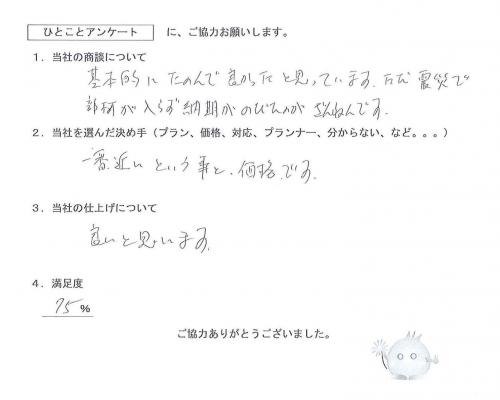 ひとことアンケート に、ご協力お願いします。
1．当社の商談について
基本的にたのんで良かったと思っています。ただ震災で
部材が入らず納期がのびたのがざんねんです。
2．当社を選んだ決め手（プラン、価格、対応、プランナー、分からない、など。。。）
一番近いという事と、価格です。
3．当社の仕上げについて
良いと思います。
4．満足度
75％
ご協力ありがとうございました。